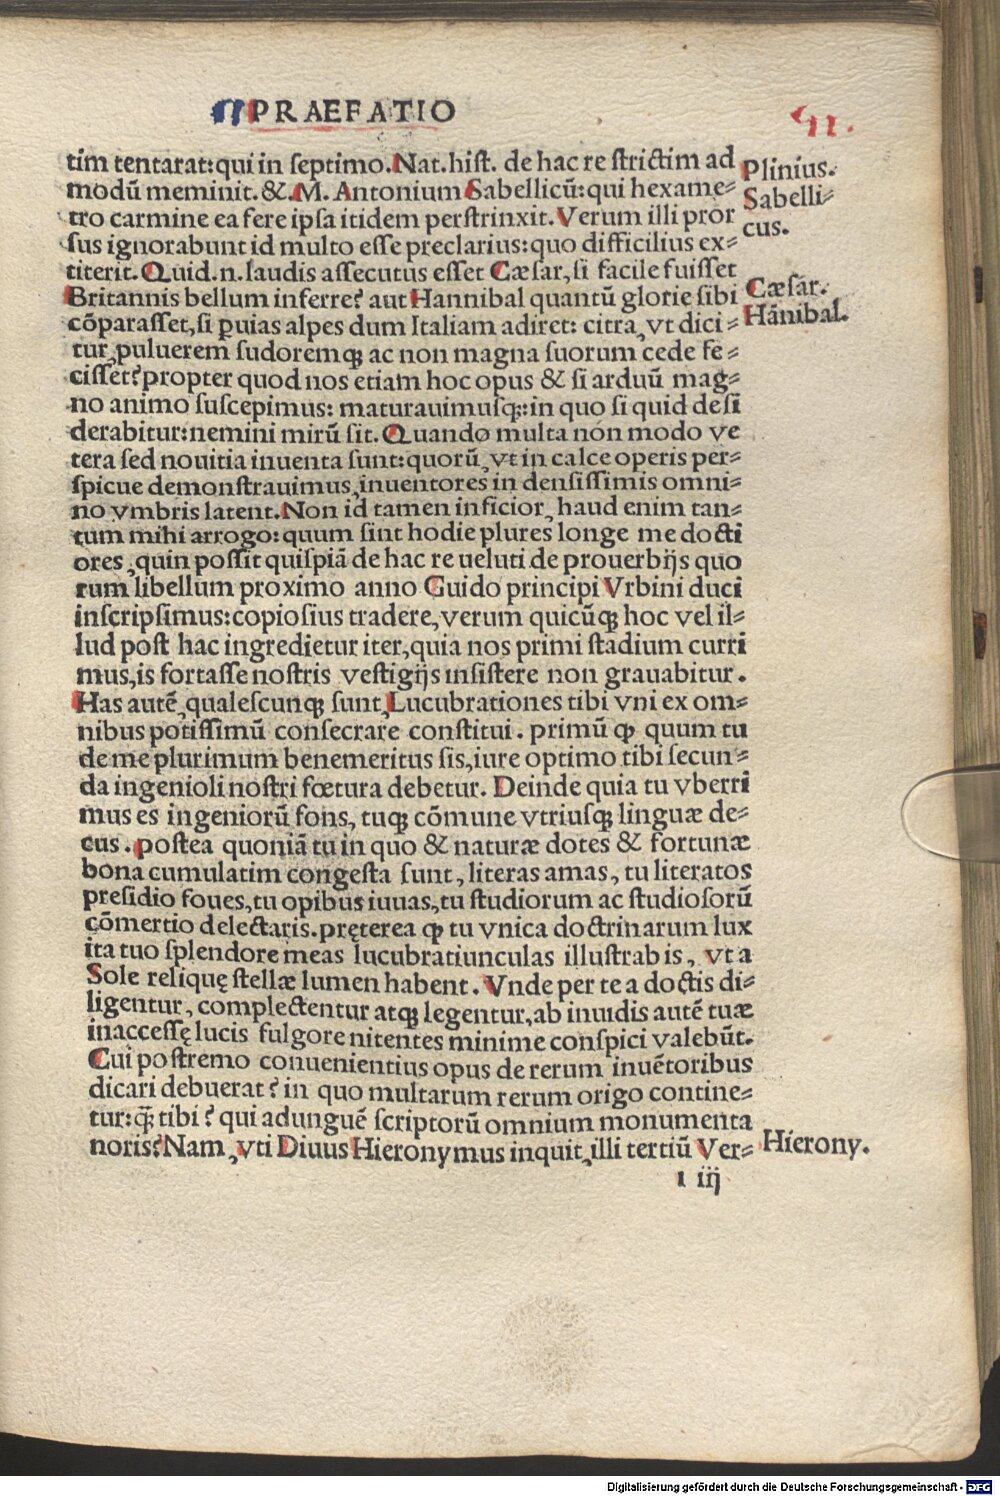 ¶ PRAEFATIO
II.
tim tentarat: qui in septimo. Nat. hist. de hac re strictim ad
modū meminit. &. M. Antonium Sabellicū: qui hexame⸗
tro carmine ea fere ipsa itidem perstrinxit. Verum illi pror
sus ignorabunt id multo esse preclarius: quo difficilius ex⸗
titerit. Quid .n. laudis assecutus esset Cæsar, si facile fuisset
Britannis bellum inferre? aut Hannibal quantū glorie sibi
cōparasset, si ꝑuias alpes dum Italiam adiret: citra, vt dici⸗
tur, puluerem sudoremqꝫ ac non magna suorum cede fe⸗
cisset? propter quod nos etiam hoc opus & si arduū mag⸗
no animo suscepimus: maturauimusqꝫ: in quo si quid desi
derabitur: nemini mirū sit. Quando multa non modo ve
tera sed nouitia inuenta sunt: quorū, vt in calce operis per⸗
spicue demonstrauimus, inuentores in densissimis omni⸗
no vmbris latent. Non id tamen inficior, haud enim tan⸗
tum mihi arrogo: quum sint hodie plures longe me docti
ores, quin possit quispiā de hac re ueluti de prouerbijs quo
rum libellum proximo anno Guido principi Vrbini duci
inscripsimus: copiosius tradere, verum quicūqꝫ hoc vel il⸗
lud post hac ingredietur iter, quia nos primi stadium curri
mus, is fortasse nostris vestigijs insistere non grauabitur.
Has autē, qualescunqꝫ sunt, Lucubrationes tibi vni ex om⸗
nibus potissimū consecrare constitui. primū ꝙ quum tu
de me plurimum benemeritus sis, iure optimo tibi secun⸗
da ingenioli nostri fœtura debetur. Deinde quia tu vberri
mus es ingeniorū fons, tuqꝫ cōmune vtriusqꝫ linguæ de⸗
cus. postea quoniā tu in quo & naturæ dotes & fortunæ
bona cumulatim congesta sunt, literas amas, tu literatos
presidio foues, tu opibus iuuas, tu studiorum ac studiosorū
cōmertio delectaris. pręterea ꝙ tu vnica doctrinarum lux
ita tuo splendore meas lucubratiunculas illustrabis, vt a
Sole reliquę stellæ lumen habent. Vnde per te a doctis di⸗
ligentur, complectentur atqꝫ legentur, ab inuidis autē tuæ
inaccessę lucis fulgore nitentes minime conspici valebūt.
Cui postremo conuenientius opus de rerum inuētoribus
dicari debuerat? in quo multarum rerum origo contine⸗
tur: qꝫ̄ tibi? qui ad unguē scriptorū omnium monumenta
noris? Nam, vti Diuus Hieronymus inquit, illi tertiū Ver⸗
Plinius.
Sabelli⸗
cus.
Cæsar.
Hānibal.
Hierony.
ı iij
Digitalisierung gefördert durch die Deutsche Forschungsgemeinschaft - DFG